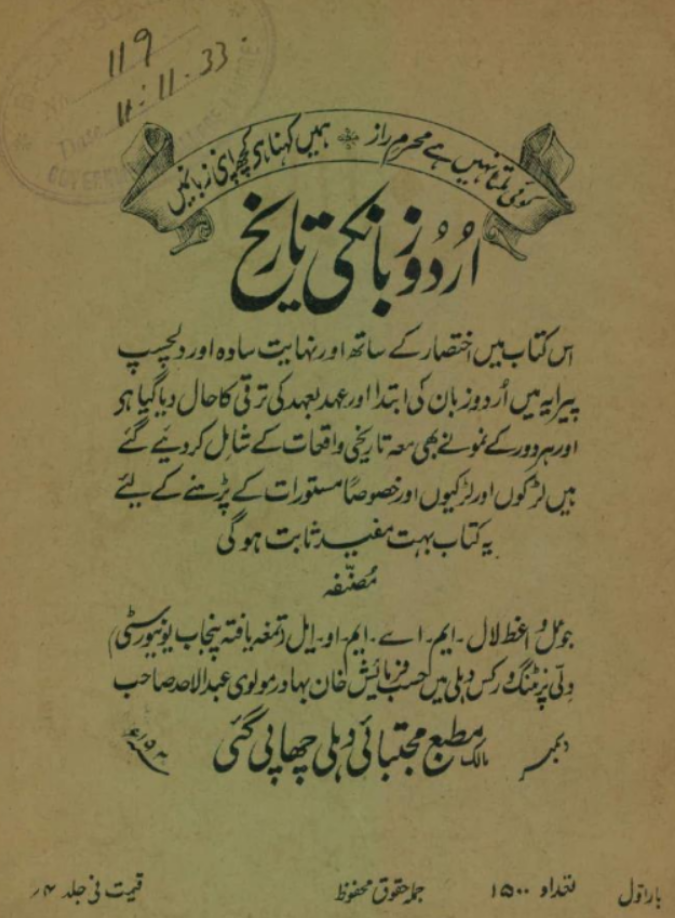 119
11-11-33.
کوئی ملتا نہیں ہے محرم راز ہمیں کہنا ہی کچھ اپنی زبانمیں
اُردو زبانکی تاریخ
اس کتاب میں اختصار کے ساتھ اور نہایت سادہ اور دلچسپ
پیرایہ میں اُردو زبان کی ابتدا اور عہد بعہد کی ترقی کا حال دیا گیا ہو
اور ہر دور کے نمونے بھی معہ تاریخی واقعات کے شامل کر دئیے گئے
ہیں لڑکوں اور لڑکیوں اور خصوصاً مستورات کے پڑہنے کے لیئے
یہ کتاب بہت مفید ثابت ہو گی
مُصنّفہ
جوئل واعظ لال - ایم - اے - ایم - او - ایل (تمغہ یافتہ پنجاب یونیورسٹی)
دلّی پرنٹنگ ورکس دہلی میں حسب فرمائیش خان بہادر مولوی عبد الاحد صاحب
دسمبر مالک مطبع مجتبائی دہلی چھاپی گئی
بار اوّل تعداد ۱۵۰۰ جملہ حقوق محفوظ قیمت فی جلد ۴؍